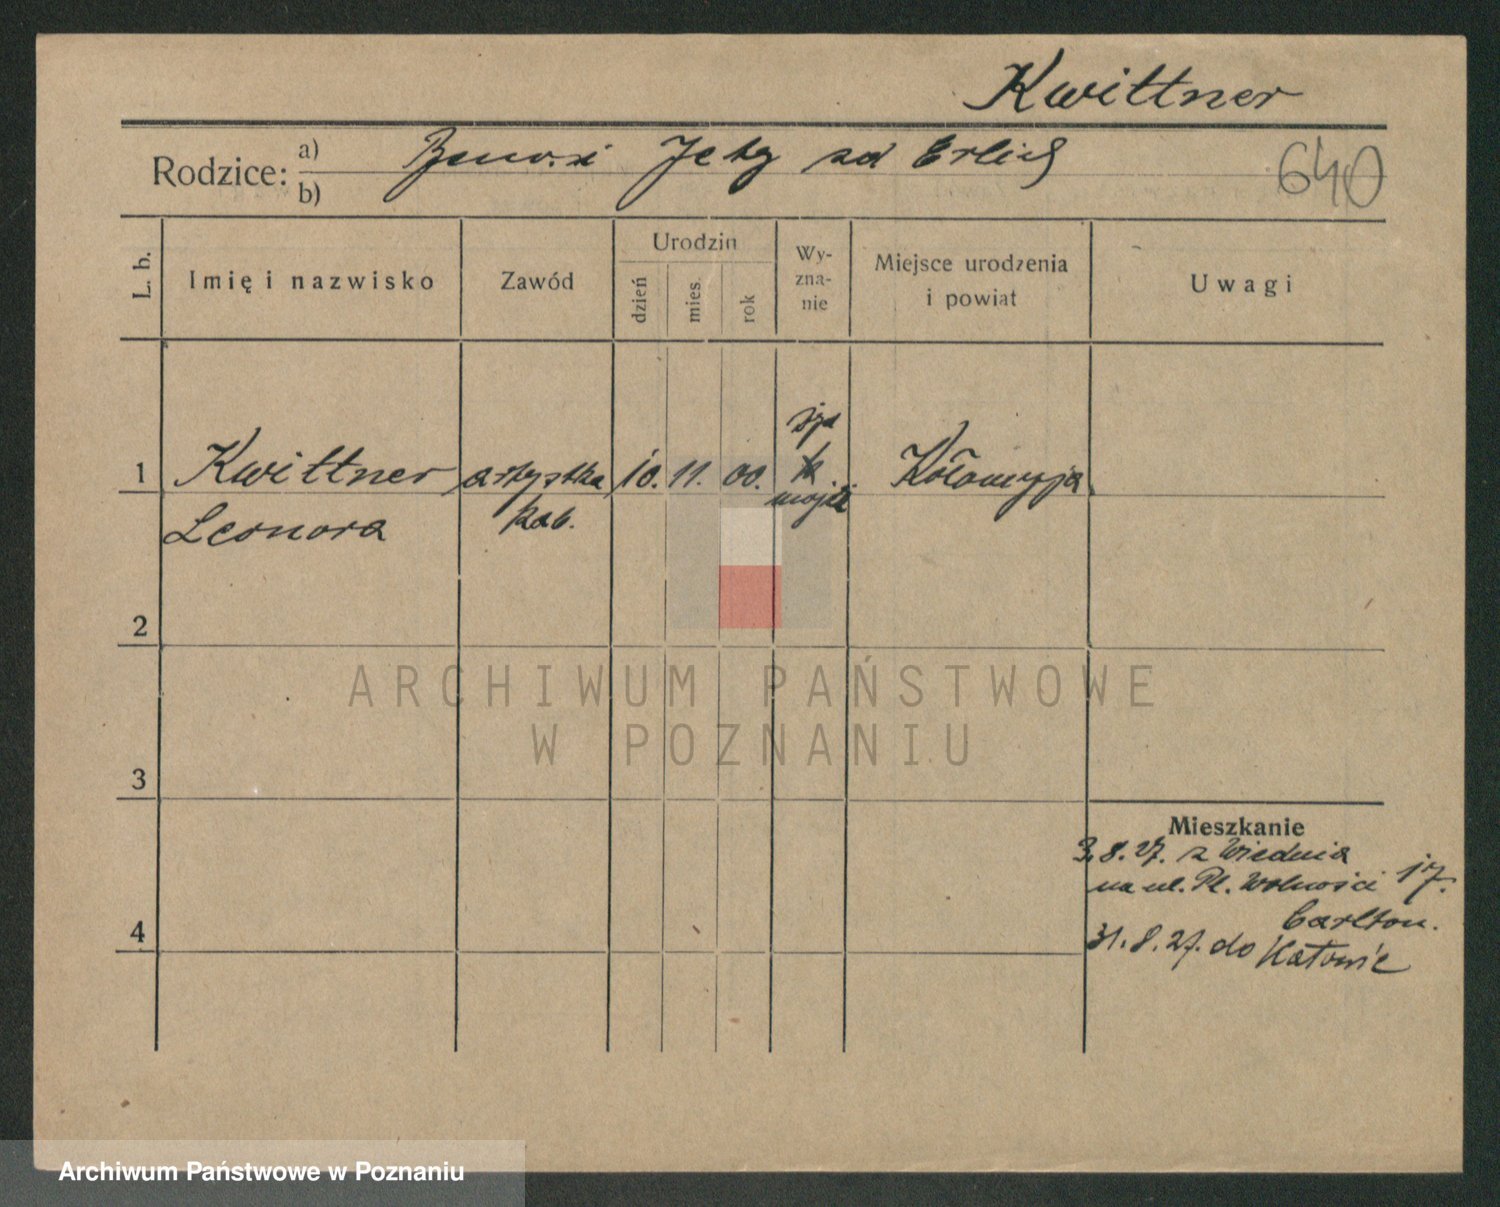 Kwittner
Rodzice: a) i Jety zd Erlich
b)
640
L. b.
Imię i nazwisko
Zawód
Urodzin
dzień
mies.
rok
Wy-
zna-
nie
Miejsce urodzenia
i powiat
Uwagi
1
Kwittner artystka 10. 11. 00. Kołomyja
Leonora kab.
mojż
2
3
4
Mieszkanie
3.8.27. z Wiednia
na ul. Pl. Wolności 17.
Carlton.
31.8.27. do Katowic
ARCHIWUM PAŃSTWOWE
W POZNANIU
Archiwum Państwowe w Poznaniu